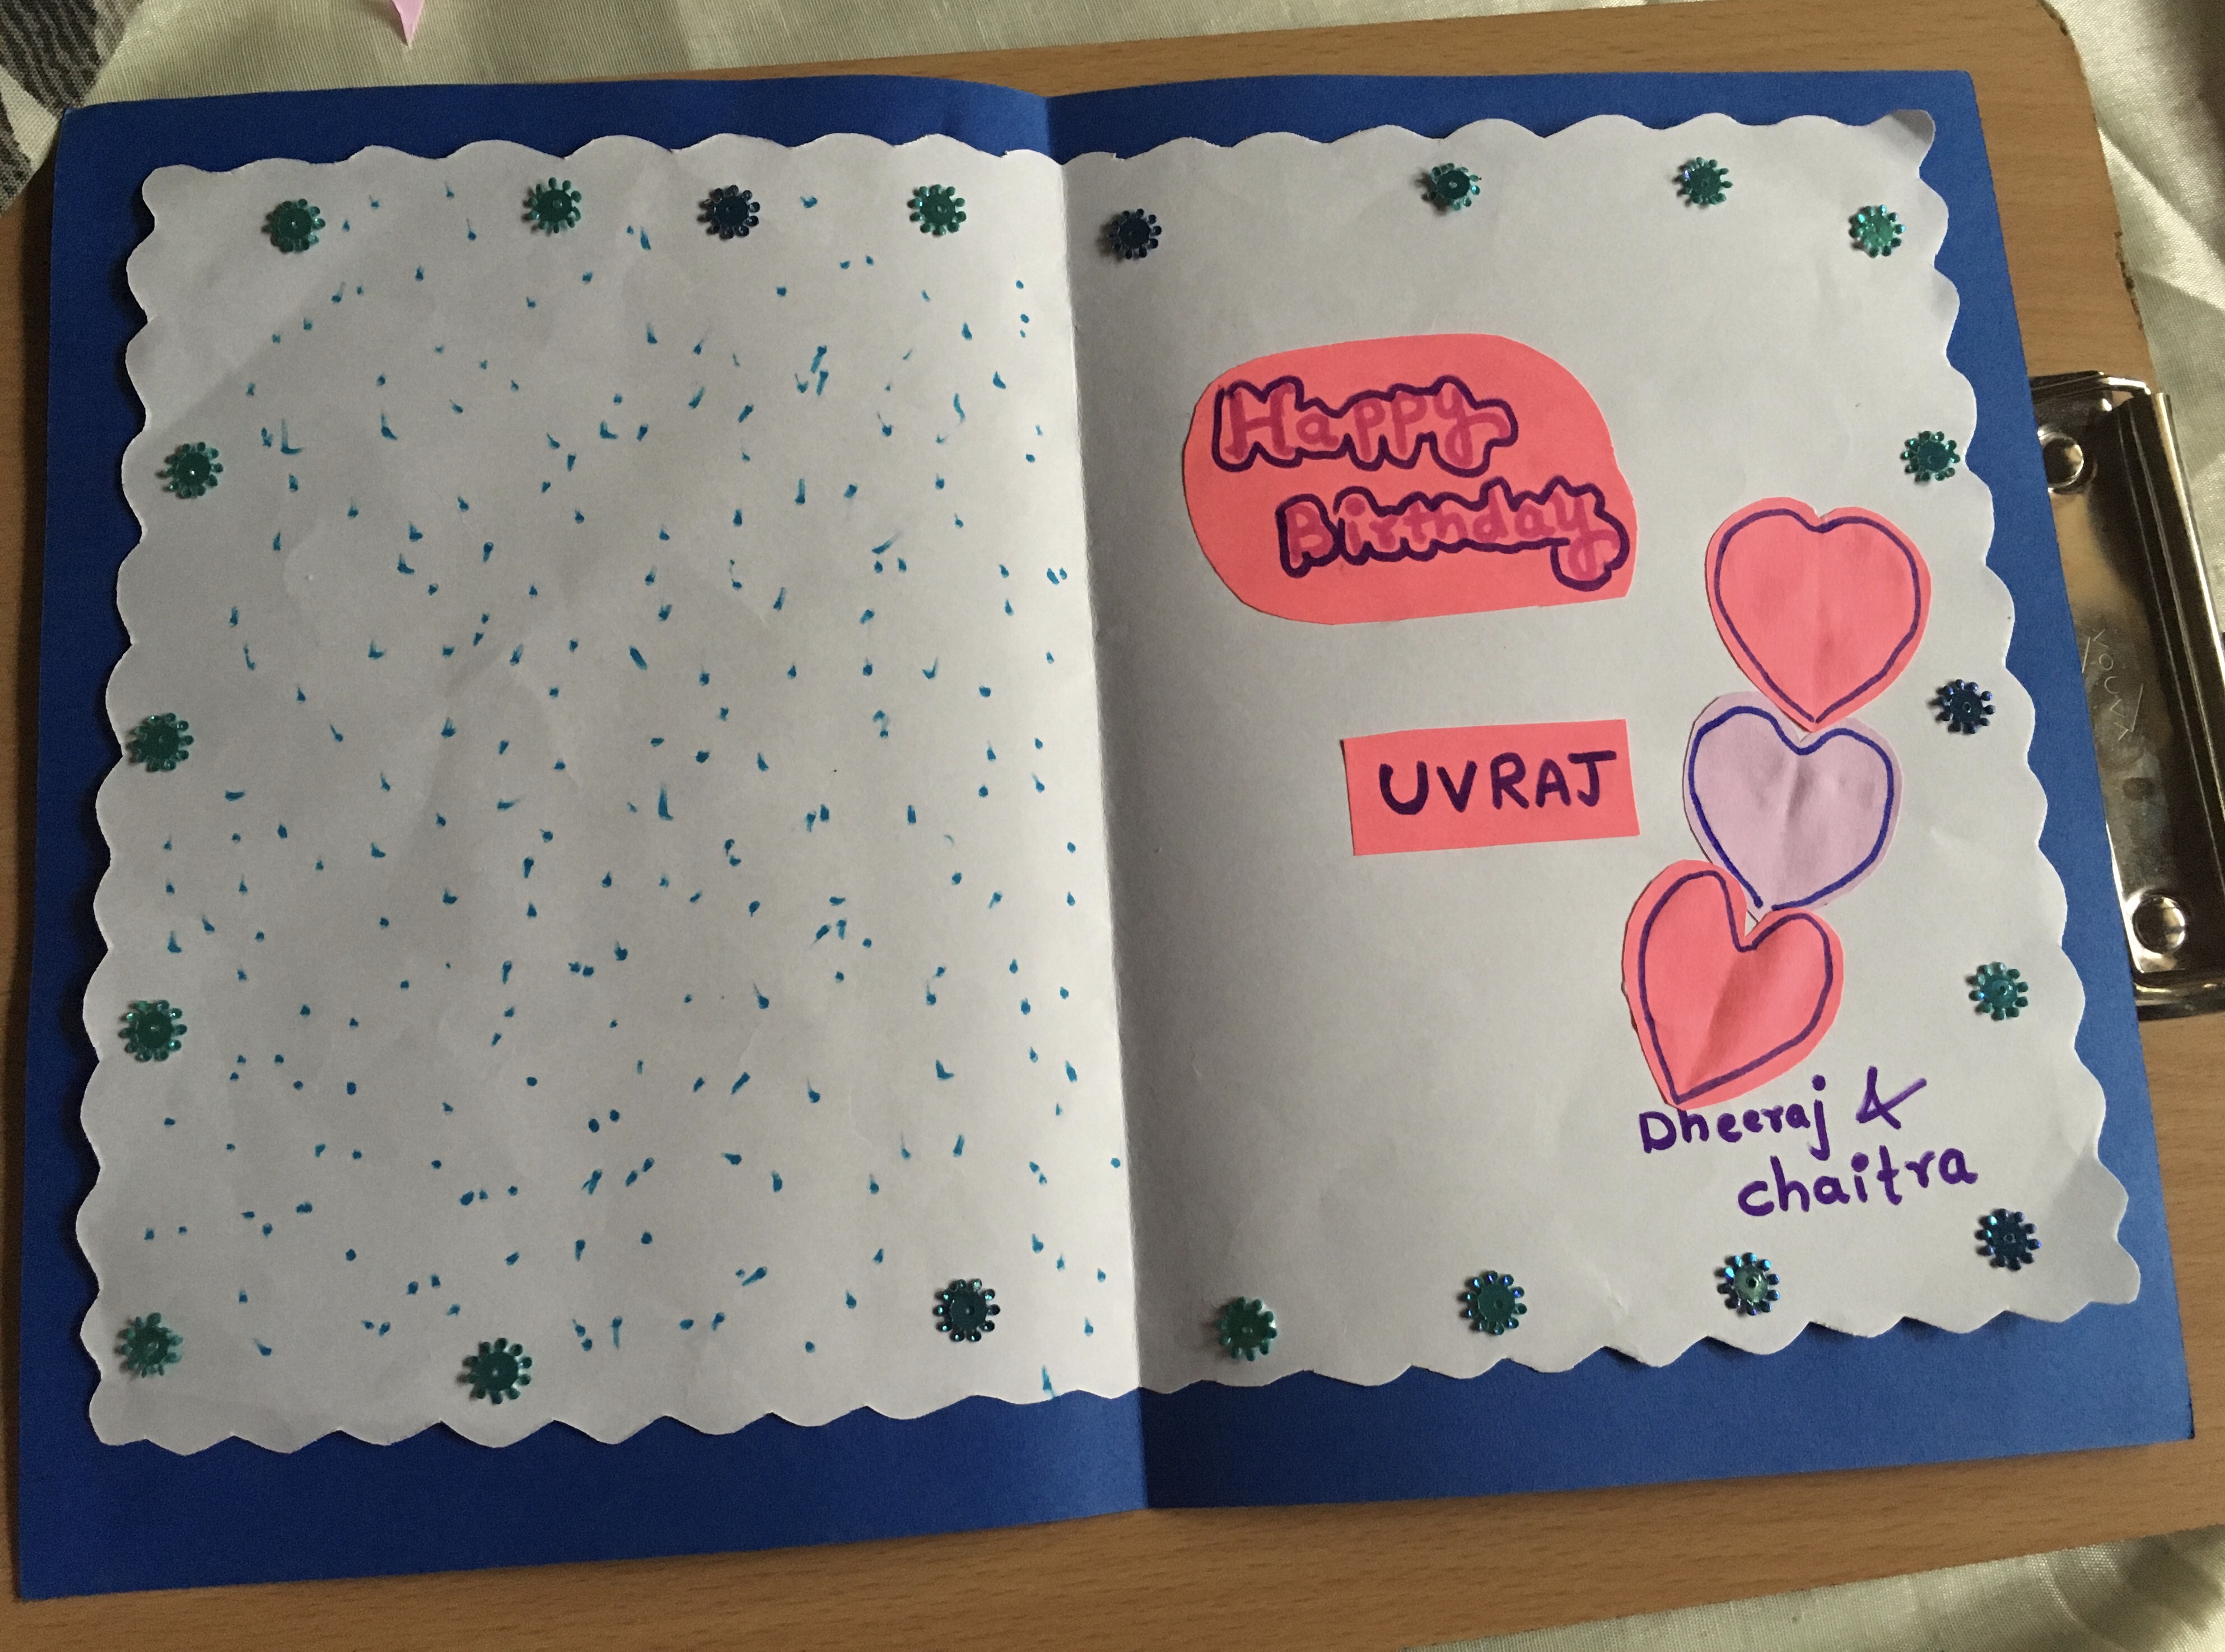 Happy
Birthday
UVRAJ
Dheeraj &
chaitra